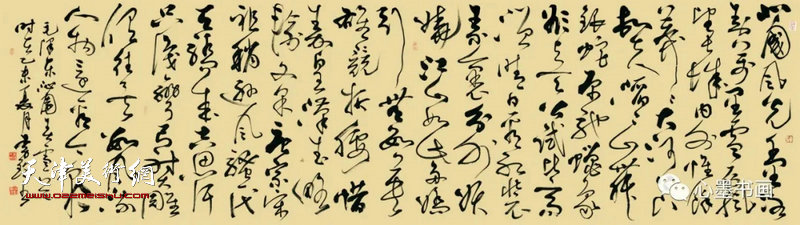 北国风光千里冰
封万里雪飘
望长城内外惟余
莽莽大河上
滔滔山舞
银蛇原驰蜡象
欲与天公试比高
须晴日看红装
素裹分外妖
娆江山如此多娇
引无数英
雄竞折腰惜
秦皇汉武略
输文采唐宗宋
祖稍逊风骚一代
天骄成吉思汗
只识弯弓射大雕
俱往矣数风流
人物还看今朝
毛泽东沁园春雪
时在乙未夏月
天津美术网
心墨书画